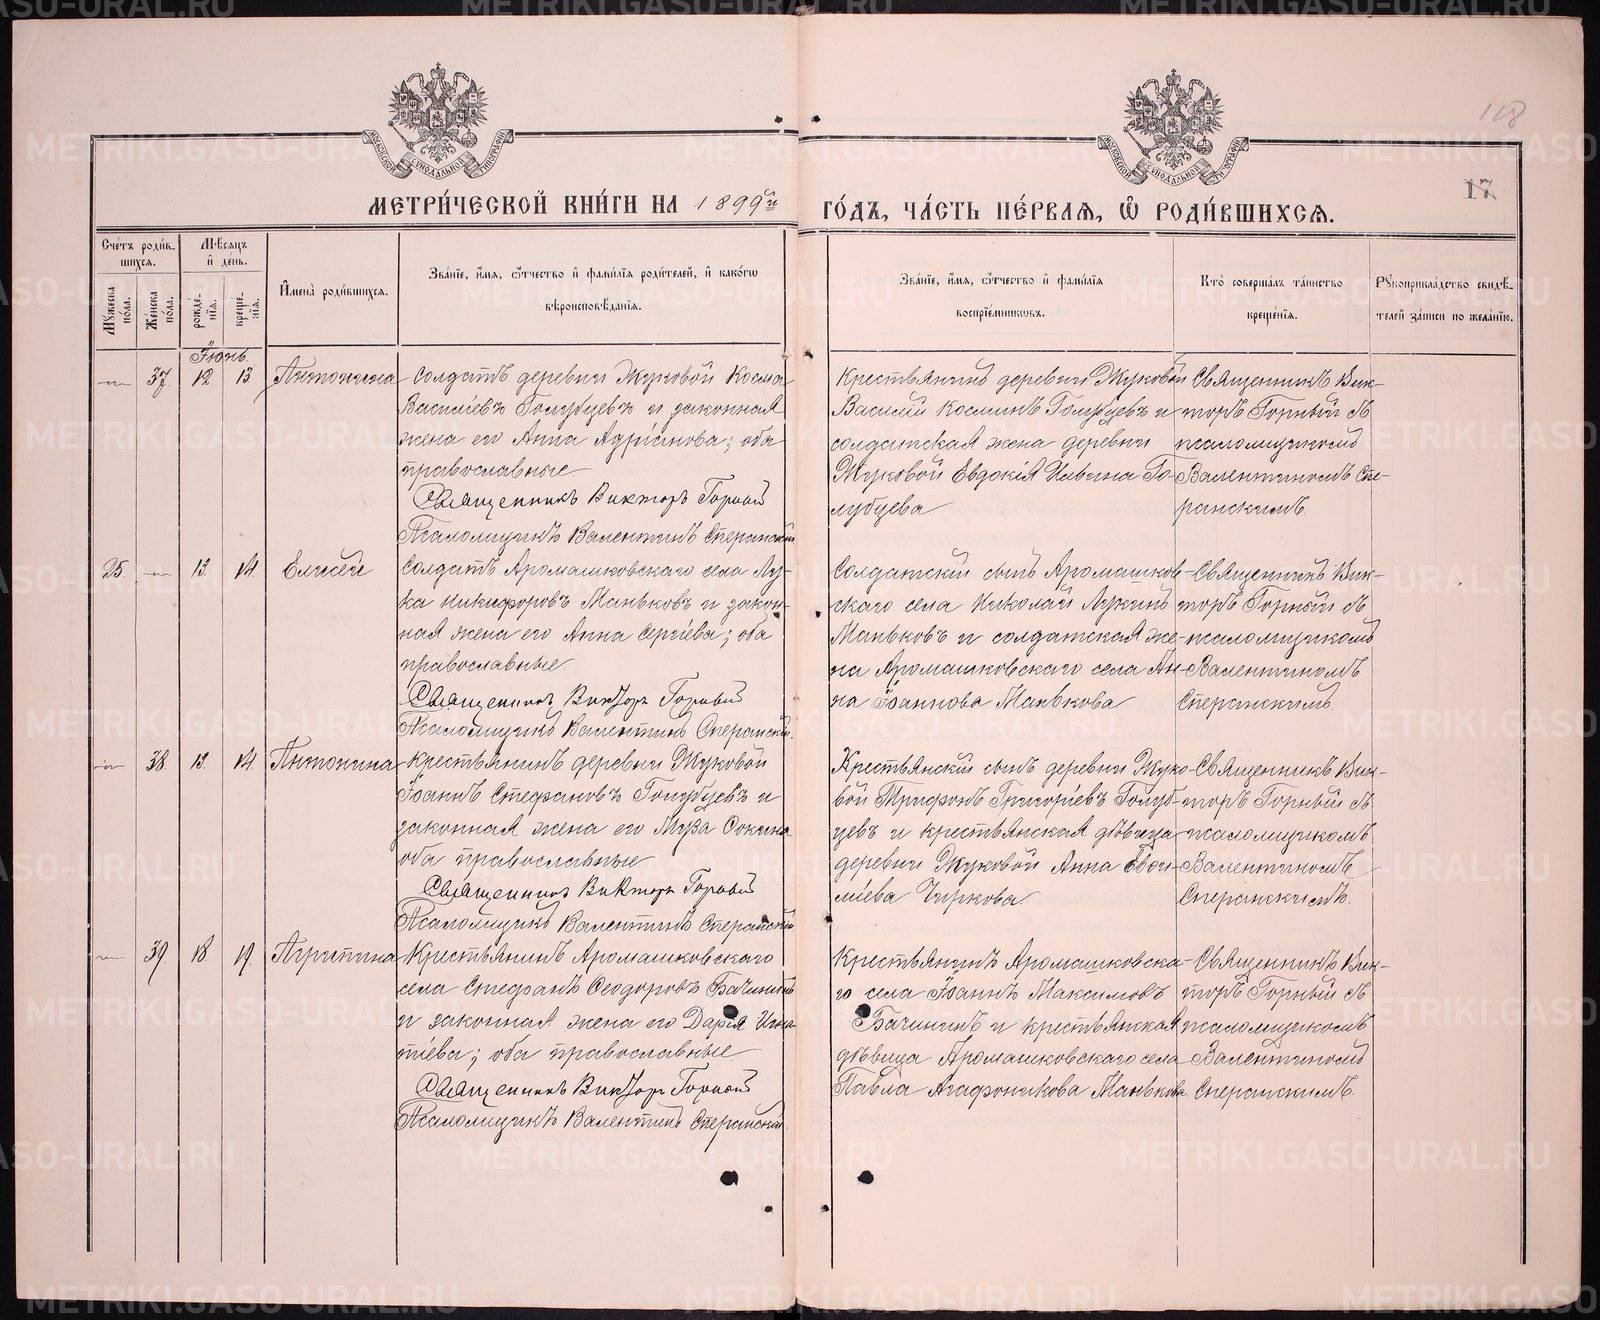 118
17
МЕТРИ́ЧЕСКОЙ КНИ́ГИ НА 1899й
ГО́ДЪ, ЧА́СТЬ ПЕ́РВАЯ, Ѡ РОДИ́ВШИХСЯ.
Сче́тъ роди́в-
шихся.
Мѣсяцъ
и де́нь.
Мꙋжеска по́ла.
Же́нска по́ла.
рожде́-
нїя.
креще́-
нїя.
Имена̀ роди́вшихся.
Зва́нїе, и́мя, ѻ҆́тчество и фами́лїя роди́телей, и како́гѡ
вѣроисповѣ́данїя.
Зва́нїе, и́мя, ѻ҆́тчество и фами́лїя
воспрїе́мниковъ.
Кто̀ соверша́лъ та́инство
креще́нїя.
Рꙋкоприкла́дство свидѣ́-
телей за́писи по жела́нїю.
Іюнь.
37. 12. 13. Антонина
Солдатъ деревни Жуковой Косма
Васильевъ Голубцевъ и законная
жена его Анна Адріанова; оба
православные
Священникъ Викторъ Горный
Псаломщикъ Валентинъ Сперанскій
Крестьянинъ деревни Жуковой
Василій Косминъ Голубцевъ и
солдатская жена деревни
Жуковой Евдокія Го-
лубцева
Священникъ Вик-
торъ Горный съ
псаломщикомъ
Валентиномъ Спе-
ранскимъ.
25. 13. 14. Елисей
Солдатъ Аромашковскаго села Лу-
ка Никифоровъ Маньковъ и закон-
ная жена его Анна Сергіева; оба
православные
Священникъ Викторъ Горный
Псаломщикъ Валентинъ Сперанскій.
Солдатскій сынъ Аромашков-
скаго села Николай Лукинъ
Маньковъ и солдатская же-
на Аромашковскаго села Ан-
на Іоаннова Манькова
Священникъ Вик-
торъ Горный съ
псаломщикомъ
Валентиномъ
Сперанскимъ.
38. 13. 14. Антонина
Крестьянинъ деревни Жуковой
Іоаннъ Стефановъ Голубцевъ и
законная жена его Муза Сокина
оба православные
Священникъ Викторъ Горный
Псаломщикъ Валентинъ Сперанскій
Крестьянскій сынъ деревни Жуко-
вой Трифонъ Григоріевъ Голуб-
цевъ и крестьянская дѣвица
деревни Жуковой Анна
Чиркова
Священникъ Вик-
торъ Горный съ
псаломщикомъ
Валентиномъ
Сперанскимъ.
39. 18. 19. Агрипина
Крестьянинъ Аромашковскаго
села Стефанъ Ѳеодоровъ Бачининъ
и законная жена его Дарія Игна-
тіева; оба православные
Священникъ Викторъ Горный
Псаломщикъ Валентинъ Сперанскій.
Крестьянинъ Аромашковска-
го села Іоаннъ Максимовъ
Бачининъ и крестьянская
дѣвица Аромашковскаго села
Павла Агафоникова Манькова
Священникъ Вик-
торъ Горный съ
псаломщикомъ
Валентиномъ
Сперанскимъ.
METRIKI.GASO-URAL.RU